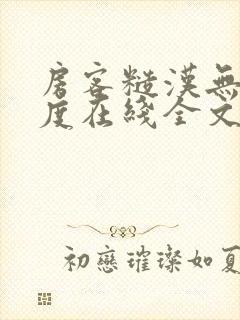 房客糙漢無
度在綫全文
初戀璀璨如夏